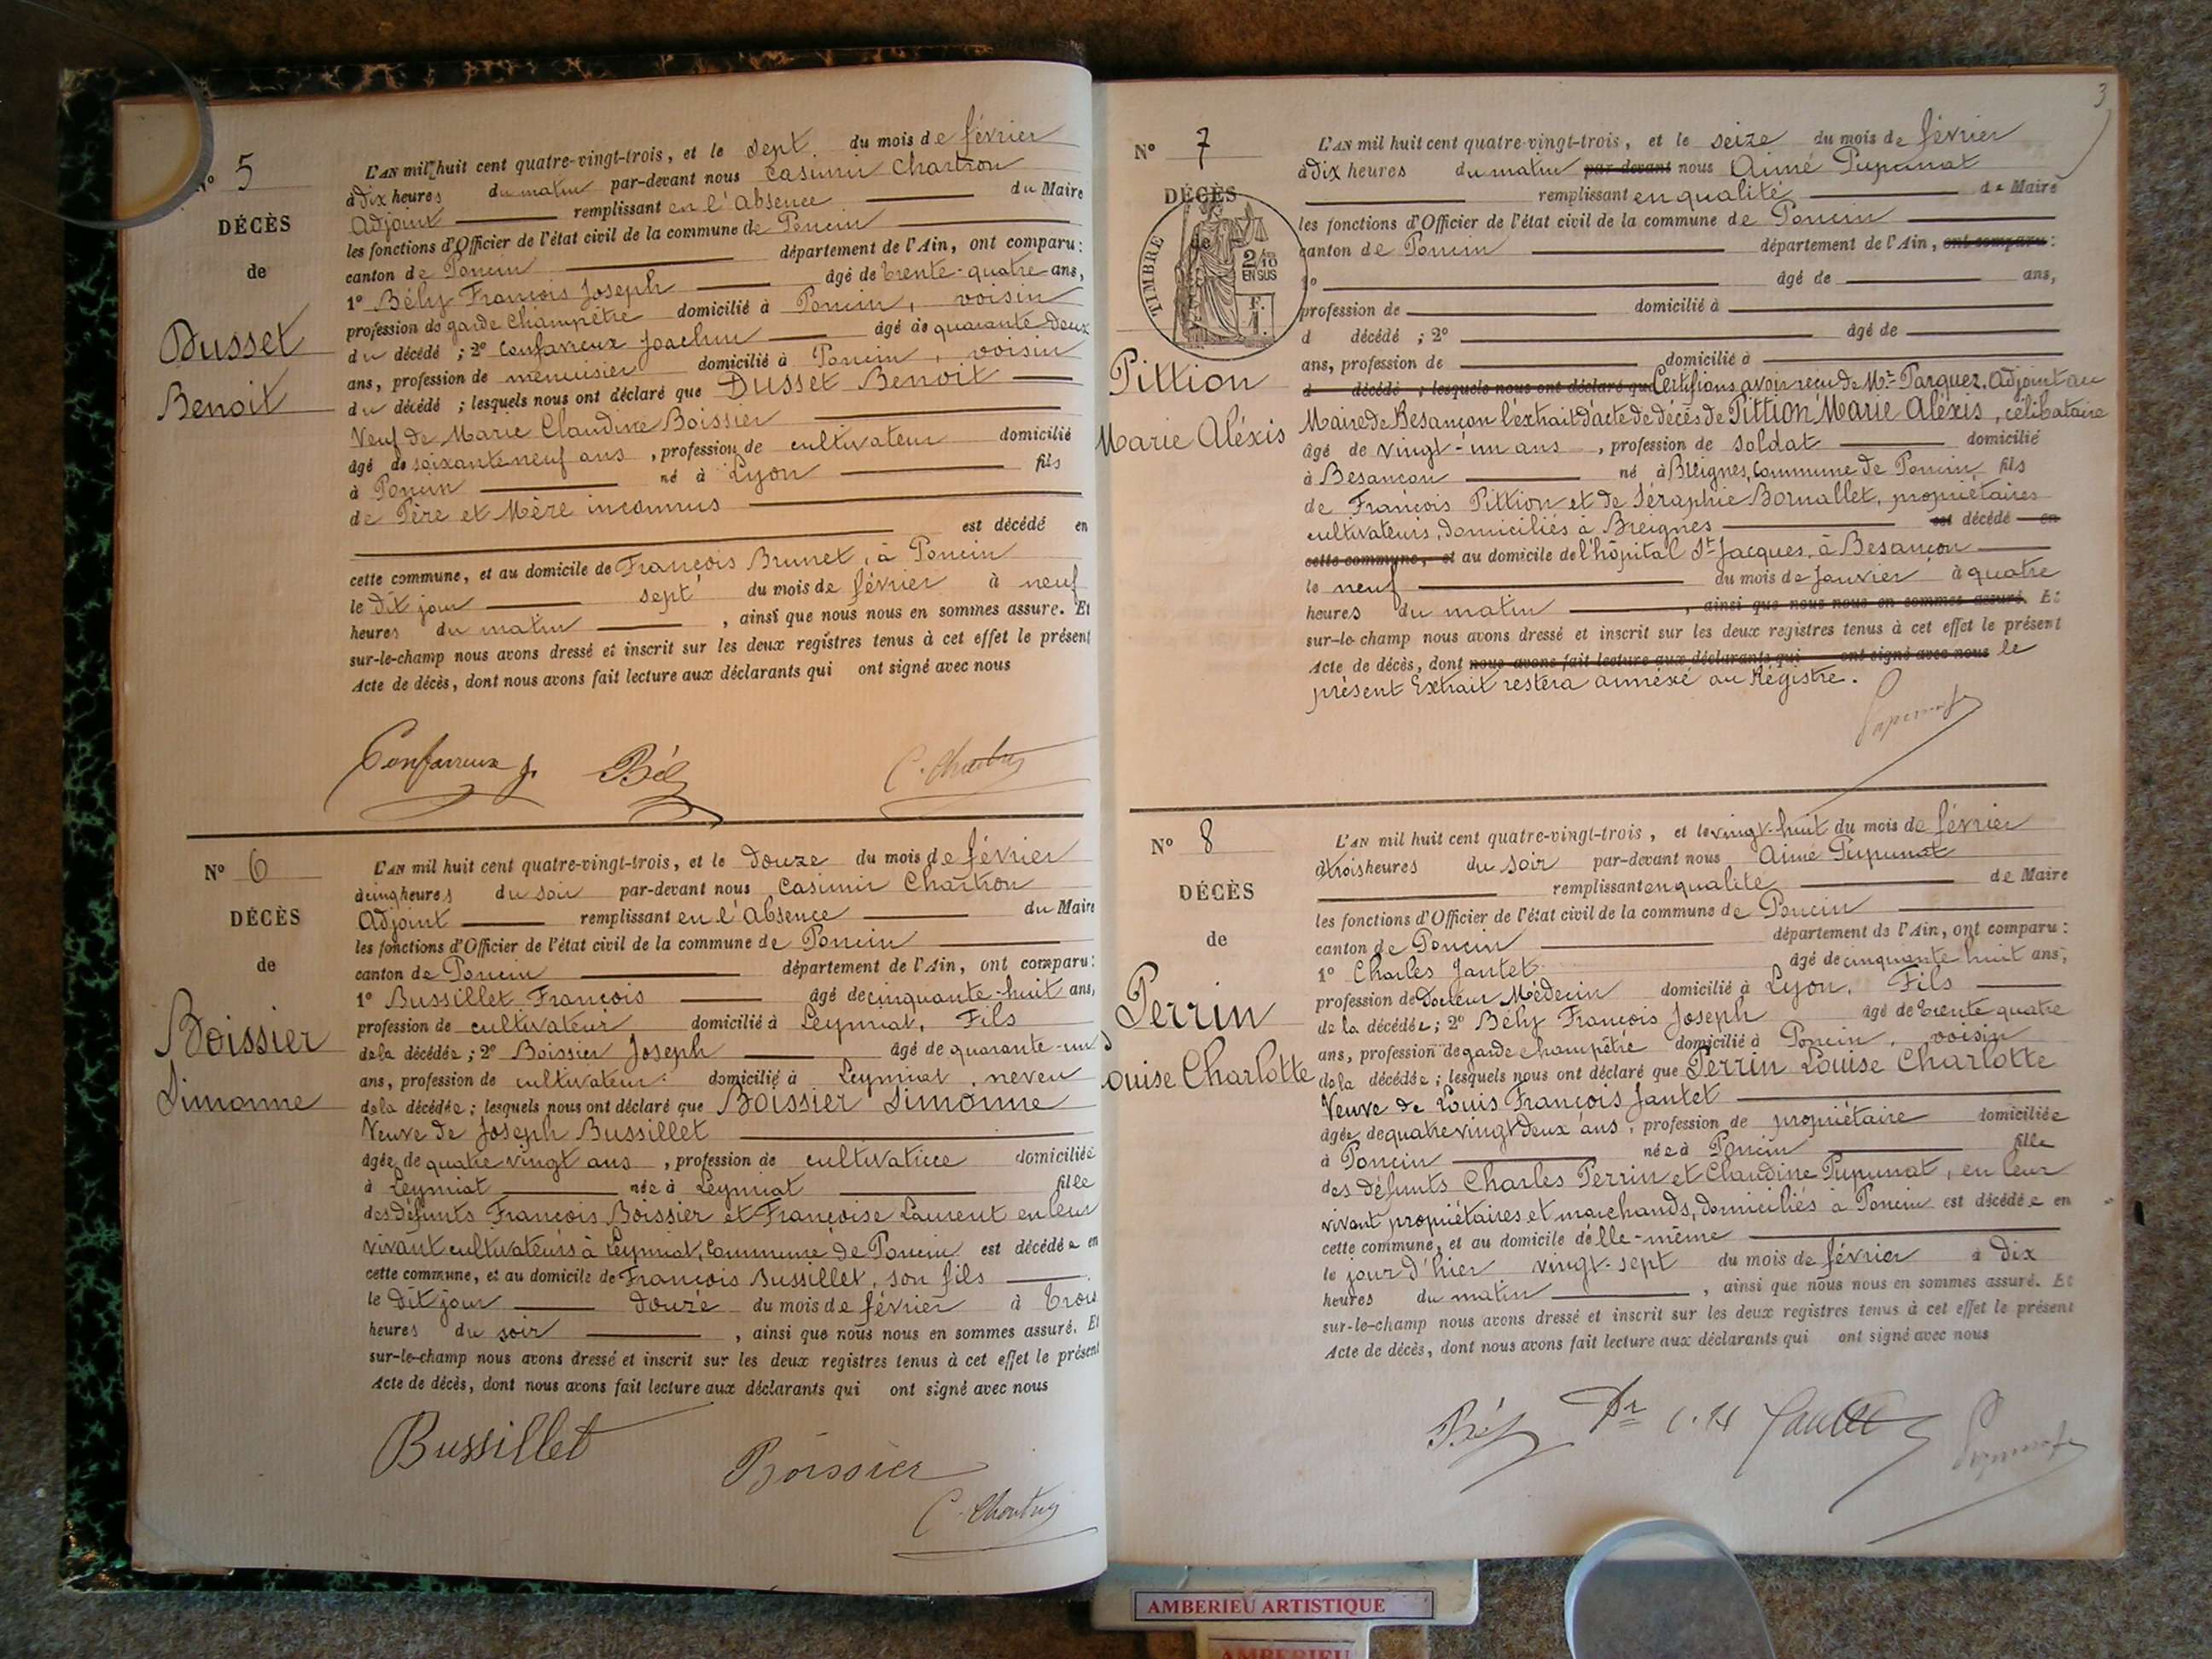 N° 5
DÉCÈS
de
Dusset
Benoit
L'AN mil huit cent quatre-vingt-trois, et le sept du mois de février
à dix heures du matin par-devant nous Casimir Chartron
Adjoint remplissant en l'absence du Maire
les fonctions d'Officier de l'état civil de la commune de Poncin
canton de Poncin département de l'Ain, ont comparu :
1° Bély François Joseph âgé de trente-quatre ans,
profession de garde champêtre domicilié à Poncin, voisin
du décédé ; 2° Confavreux Joachim âgé de quarante deux
ans, profession de menuisier domicilié à Poncin, voisin
du décédé ; lesquels nous ont déclaré que Dusset Benoit
Veuf de Marie Claudine Boissier
âgé de soixante neuf ans, profession de cultivateur domicilié
à Poncin né à Lyon fils
de Père et Mère inconnus
est décédé en
cette commune, et au domicile de François Brunet, à Poncin
le dit jour sept du mois de février à neuf
heures du matin, ainsi que nous nous en sommes assuré. Et
sur-le-champ nous avons dressé et inscrit sur les deux registres tenus à cet effet le présent
Acte de décès, dont nous avons fait lecture aux déclarants qui ont signé avec nous
Confavreux J. Bély C. Chartron
N° 6
DÉCÈS
de
Boissier
Simonne
L'AN mil huit cent quatre-vingt-trois, et le douze du mois de février
à cinq heures du soir par-devant nous Casimir Chartron
Adjoint remplissant en l'absence du Maire
les fonctions d'Officier de l'état civil de la commune de Poncin
canton de Poncin département de l'Ain, ont comparu :
1° Bussillet François âgé de cinquante-huit ans,
profession de cultivateur domicilié à Leymiat, Fils
de la décédée ; 2° Boissier Joseph âgé de quarante-un
ans, profession de cultivateur domicilié à Leymiat, neveu
de la décédée ; lesquels nous ont déclaré que Boissier Simonne
Veuve de Joseph Bussillet
âgée de quatre vingt ans, profession de cultivatrice domiciliée
à Leymiat née à Leymiat fille
des défunts François Boissier et Françoise Laurent en leur
vivant cultivateurs à Leymiat, Commune de Poncin est décédée en
cette commune, et au domicile de François Bussillet, son fils
le dit jour douze du mois de février à trois
heures du soir, ainsi que nous nous en sommes assuré. Et
sur-le-champ nous avons dressé et inscrit sur les deux registres tenus à cet effet le présent
Acte de décès, dont nous avons fait lecture aux déclarants qui ont signé avec nous
Bussillet Boissier
C. Chartron
3
N° 7
DÉCÈS
de
TIMBRE
2/10
EN SUS
F.
1.
Pittion
Marie Aléxis
L'AN mil huit cent quatre-vingt-trois, et le seize du mois de février
à dix heures du matin par-devant nous Aimé Pupunat
remplissant en qualité de Maire
les fonctions d'Officier de l'état civil de la commune de Poncin
canton de Poncin département de l'Ain, ont comparu :
1° âgé de ans,
profession de domicilié à
d décédé ; 2° âgé de
ans, profession de domicilié à
d décédé ; lesquels nous ont déclaré que Certifions avoir reçu de Mr Parguez, Adjoint au
Maire de Besançon l'extrait d'acte de décès de Pittion Marie Aléxis, célibataire
âgé de vingt-un ans, profession de soldat domicilié
à Besançon né à Breignes, Commune de Poncin fils
de François Pittion et de Séraphie Bornallet, propriétaires
cultivateurs, domiciliés à Breignes est décédé en
cette commune, et au domicile de l'hôpital St Jacques, à Besançon
le neuf du mois de Janvier à quatre
heures du matin, ainsi que nous nous en sommes assuré. Et
sur-le-champ nous avons dressé et inscrit sur les deux registres tenus à cet effet le présent
Acte de décès, dont nous avons fait lecture aux déclarants qui ont signé avec nous le
présent Extrait restera annéxé au Régistre.
Pupunat
N° 8
DÉCÈS
de
Perrin
Louise Charlotte
L'AN mil huit cent quatre-vingt-trois, et le vingt-huit du mois de février
à trois heures du soir par-devant nous Aimé Pupunat
remplissant en qualité de Maire
les fonctions d'Officier de l'état civil de la commune de Poncin
canton de Poncin département de l'Ain, ont comparu :
1° Charles Jantet âgé de cinquante huit ans,
profession de Docteur Médecin domicilié à Lyon, Fils
de la décédée ; 2° Bély François Joseph âgé de trente quatre
ans, profession de garde champêtre domicilié à Poncin, voisin
de la décédée ; lesquels nous ont déclaré que Perrin Louise Charlotte
Veuve de Louis François Jantet
âgée de quatre vingt deux ans, profession de propriétaire domiciliée
à Poncin née à Poncin fille
des défunts Charles Perrin et Claudine Pupunat, en leur
vivant propriétaires et marchands, domiciliés à Poncin est décédée en
cette commune, et au domicile d'elle-même
le jour d'hier vingt-sept du mois de février à dix
heures du matin, ainsi que nous nous en sommes assuré. Et
sur-le-champ nous avons dressé et inscrit sur les deux registres tenus à cet effet le présent
Acte de décès, dont nous avons fait lecture aux déclarants qui ont signé avec nous
Bély Dr C. H Jantet Pupunat
AMBERIEU ARTISTIQUE
AMBERIEU